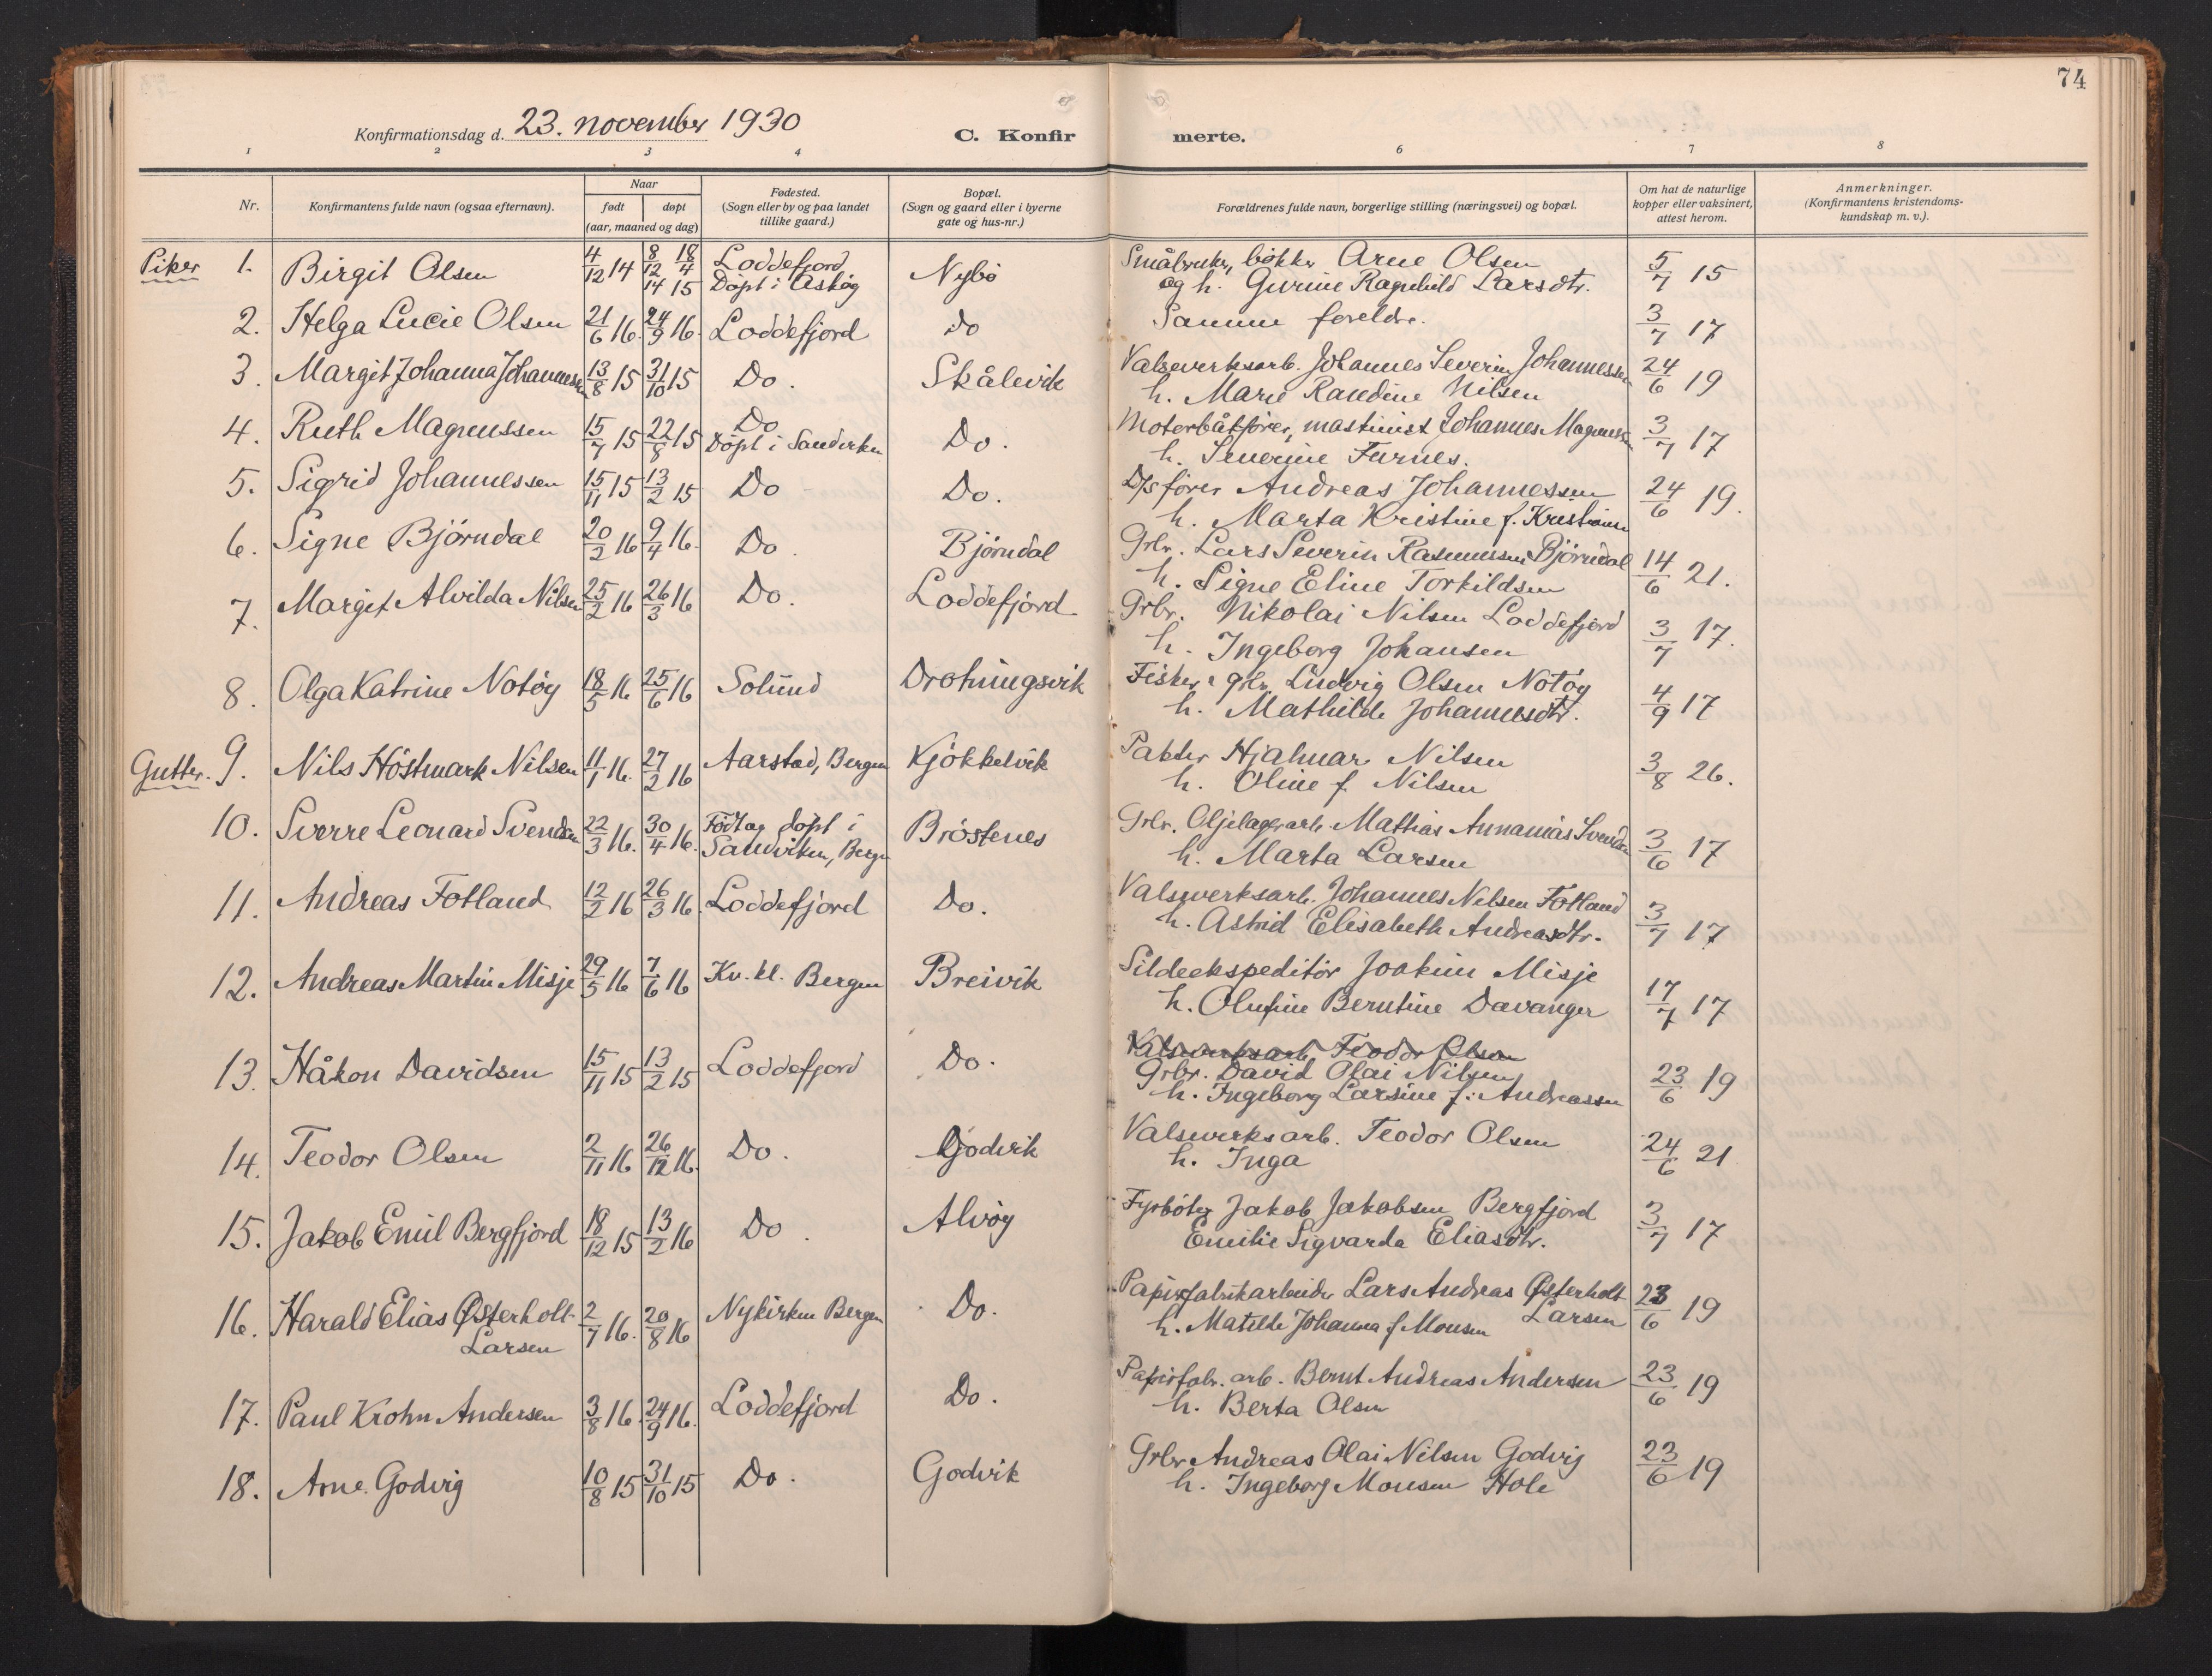 74
Konfirmationsdag d. 23. november 1930
C. Konfirmerte.
1 2 3 4 6 7 8
Nr.
Konfirmantens fulde navn (ogsaa efternavn).
Naar
født døpt
(aar, maaned og dag)
Fødested.
(Sogn eller by og paa landet
tillike gaard.)
Bopæl.
(Sogn og gaard eller i byerne
gate og hus-nr.)
Forældrenes fulde navn, borgerlige stilling (næringsvei) og bopæl.
Om hat de naturlige
kopper eller vaksinert,
attest herom.
Anmerkninger.
(Konfirmantens kristendoms-
kundskap m. v.).
Piker 1. Birgit Olsen 4/12 14 8/12 14 18/4 15 Loddefjord Nybø Småbruker, bøkker Arne Olsen 5/7 15
Døpt i Askøy og h. Gurine Ragnhild Larsdtr.
2. Helga Lucie Olsen 21/6 16. 24/9 16. Loddefjord Do Samme foreldre. 3/7 17
3. Margit Johanna Johannessen 13/8 15 31/10 15 Do. Skålevik Valseverksarb. Johannes Severin Johannessen 24/6 19
h. Marie Randine Nilsen
4. Ruth Magnussen 15/7 15 22/8 15 Do Do. Motorbåtfører, maskinist Johannes Magnussen 3/7 17
Döpt i Sandviken h. Severine Furnes.
5. Sigrid Johannessen 15/11 15 13/2 15 Do Do. D/S fører Andreas Johannessen 24/6 19.
h. Marta Kristine f. Kristiansen
6. Signe Björndal 20/2 16 9/4 16. Do. Bjørndal Grbr. Lars Severin Rasmussen Björndal 14/6 21.
h. Signe Eline Torkildsen
7. Margit Alvilda Nilsen 25/2 16 26/3 16 Do. Loddefjord Grbr. Nikolai Nilsen Loddefjord 3/7 17.
h. Ingeborg Johansen
8. Olga Katrine Notøy 18/5 16 25/6 16 Solund Drotningsvik Fisker, grbr. Ludvig Olsen Notøy 4/9 17
h. Mathilde Johannesdtr.
Gutter. 9. Nils Höstmark Nilsen 11/1 16. 27/2 16 Aarstad, Bergen Kjøkkelvik Hjalmar Nilsen 3/8 26.
h. Oline f. Nilsen
10. Sverre Leonard Svendsen 22/3 16. 30/4 16. Født og døpt i Bröstenes Grbr. Oljelagerarb. Mathias Annanias Svendsen 3/6 17
Sandviken, Bergen h. Marta Larsen
11. Andreas Fotland 12/2 16 26/3 16. Loddefjord Do. Valseverksarb. Johannes Nilsen Fotland 3/7 17
h. Astrid Elisabeth Andreasdtr.
12. Andreas Martin Misje 29/5 16 7/6 16 Kv. kl. Bergen Breivik Sildeekspeditör Joakim Misje 17/7 17
h. Olufine Berntine Davanger
13. Håkon Davidsen 15/11 15 13/2 15 Loddefjord Do. Valseverksarb. Teodor Olsen
Grbr. David Olai Nilsen 23/6 19
h. Ingeborg Larsine f. Andreassen
14. Teodor Olsen 2/11 16 26/12 16. Do. Godvik Valseverksarb. Teodor Olsen 24/6 21
h. Inga
15. Jakob Emil Bergfjord 18/12 15 13/2 16 Do. Alvøy Fyrböter Jakob Jakobsen Bergfjord 3/7 17
Emilie Sigvarda Eliasdtr.
16. Harald Elias Østerholt- 2/7 16. 20/8 16 Nykirken Bergen Do. Papirfabrikarbeider Lars Andreas Østerholt 23/6 19
Larsen Larsen
h. Matilde Johanna f. Monsen
17. Paul Krohn Andersen 3/8 16. 24/9 16. Loddefjord Do. Papirfabr. arb. Bernt Andreas Andersen 23/6 19
h. Berta Olsen
18. Arne Godvig 10/8 15 31/10 15 Do. Godvik Grbr Andreas Olai Nilsen Godvig 23/6 19
h. Ingeborg Monsen Hole